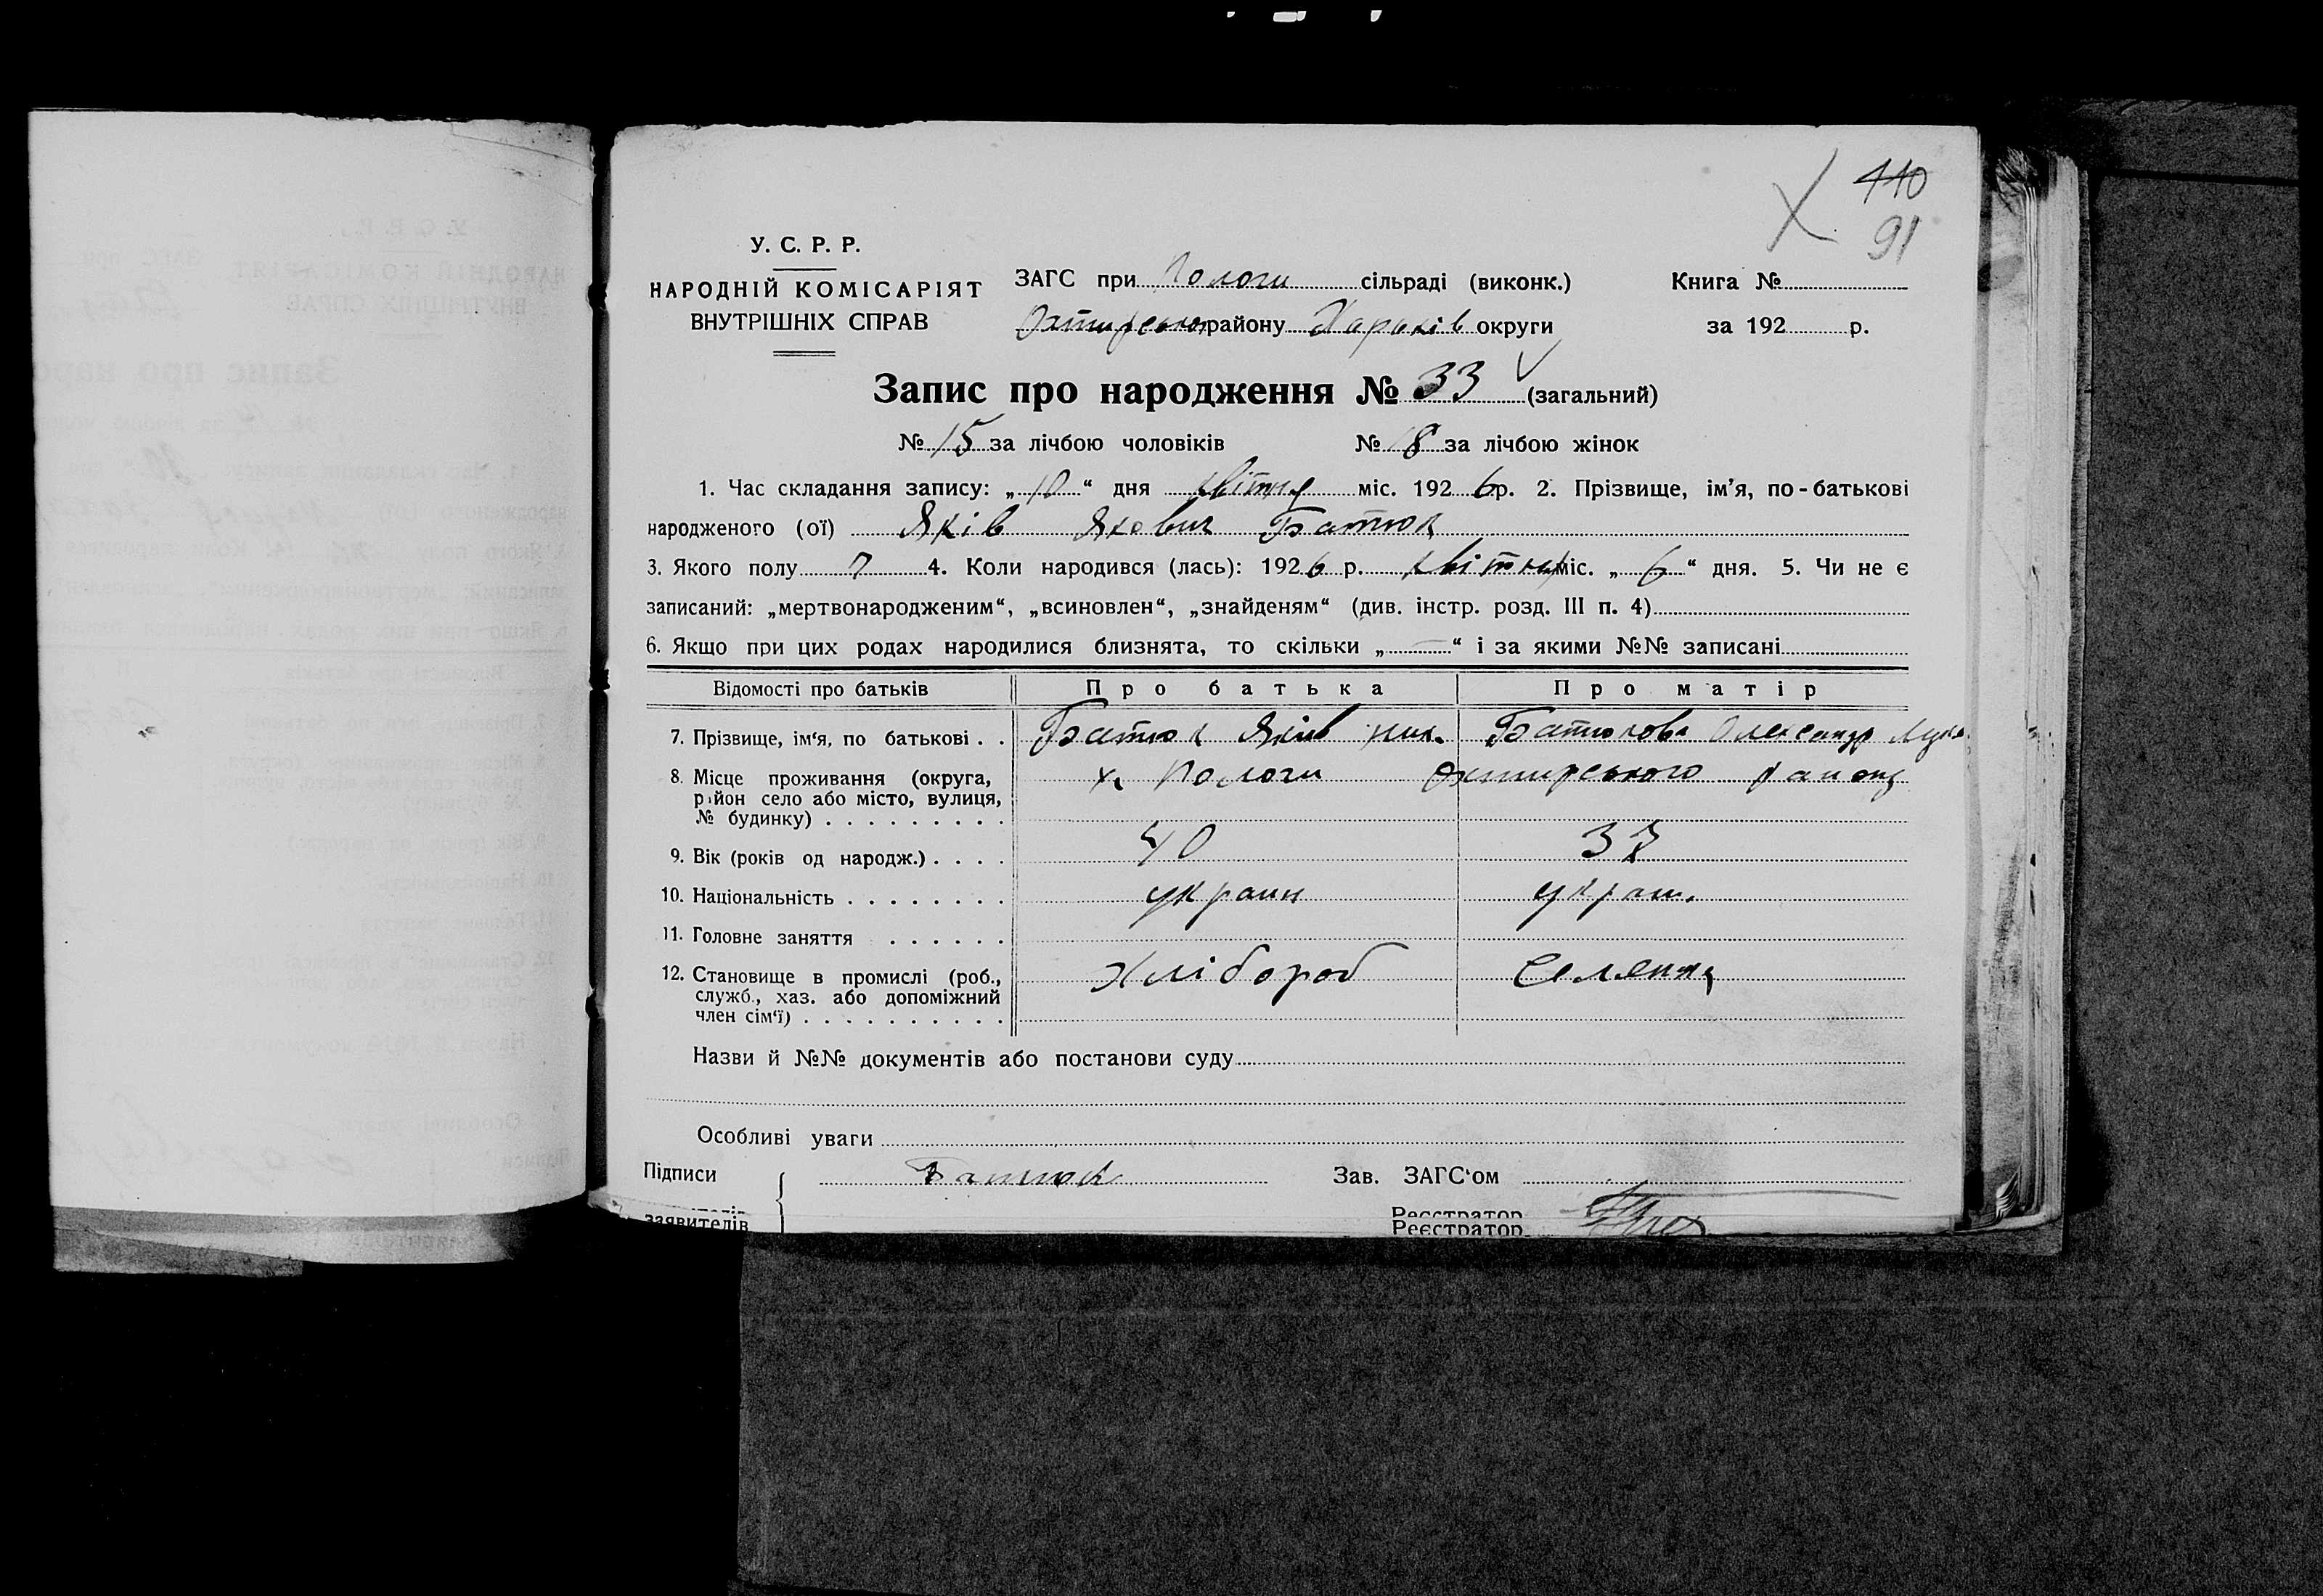 440
91
У. С. Р. Р.
НАРОДНІЙ КОМІСАРІЯТ
ВНУТРІШНІХ СПРАВ
ЗАГС при Пологи сільраді (виконк.)
Охтирського району Харьків округи
Книга №
за 192 р.
Запис про народження № 33 (загальний)
№ 15 за лічбою чоловіків № 18 за лічбою жінок
1. Час складання запису: „ 10 “ дня квітня міс. 192 6 р. 2. Прізвище, ім’я, по-батькові
народженого (ої) Яків Якович Батюк
3. Якого полу 4. Коли народився (лась): 192 6 р. квітня міс. „ 6 “ дня. 5. Чи не є
записаний: „мертвонародженим“, „всиновлен“, „знайденям“ (див. інстр. розд. III п. 4)
6. Якщо при цих родах народилися близнята, то скільки „ — “ і за якими №№ записані
Відомості про батьків Про батька Про матір
7. Прізвище, ім‘я, по батькові . . Батюк Яків ник. Батюкова Олександр
8. Місце проживання (округа, х. Пологи Охтирського району
район село або місто, вулиця,
№ будинку) . . . . . . . . .
9. Вік (років од народж.) . . . . 40 37
10. Національність . . . . . . . . украин украин.
11. Головне заняття . . . . . .
12. Становище в промислі (роб., Хлібороб Селянка
служб., хаз. або допоміжний
член сім‘ї) . . . . . . . . . .
Назви й №№ документів або постанови суду
Особливі уваги
Підписи Батюк Зав. ЗАГС‘ом
заявителів Реєстратор